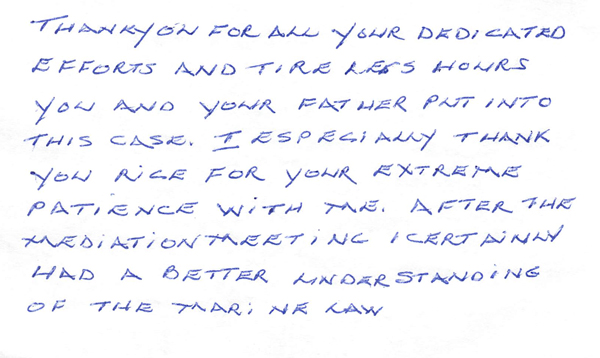 THANKYOU FOR ALL YOUR DEDICATED
EFFORTS AND TIRELESS HOURS
YOU AND YOUR FATHER PUT INTO
THIS CASE. I ESPECIALLY THANK
YOU RICE FOR YOUR EXTREME
PATIENCE WITH ME. AFTER THE
MEDIATION MEETING I CERTAINLY
HAD A BETTER UNDERSTANDING
OF THE MARINE LAW